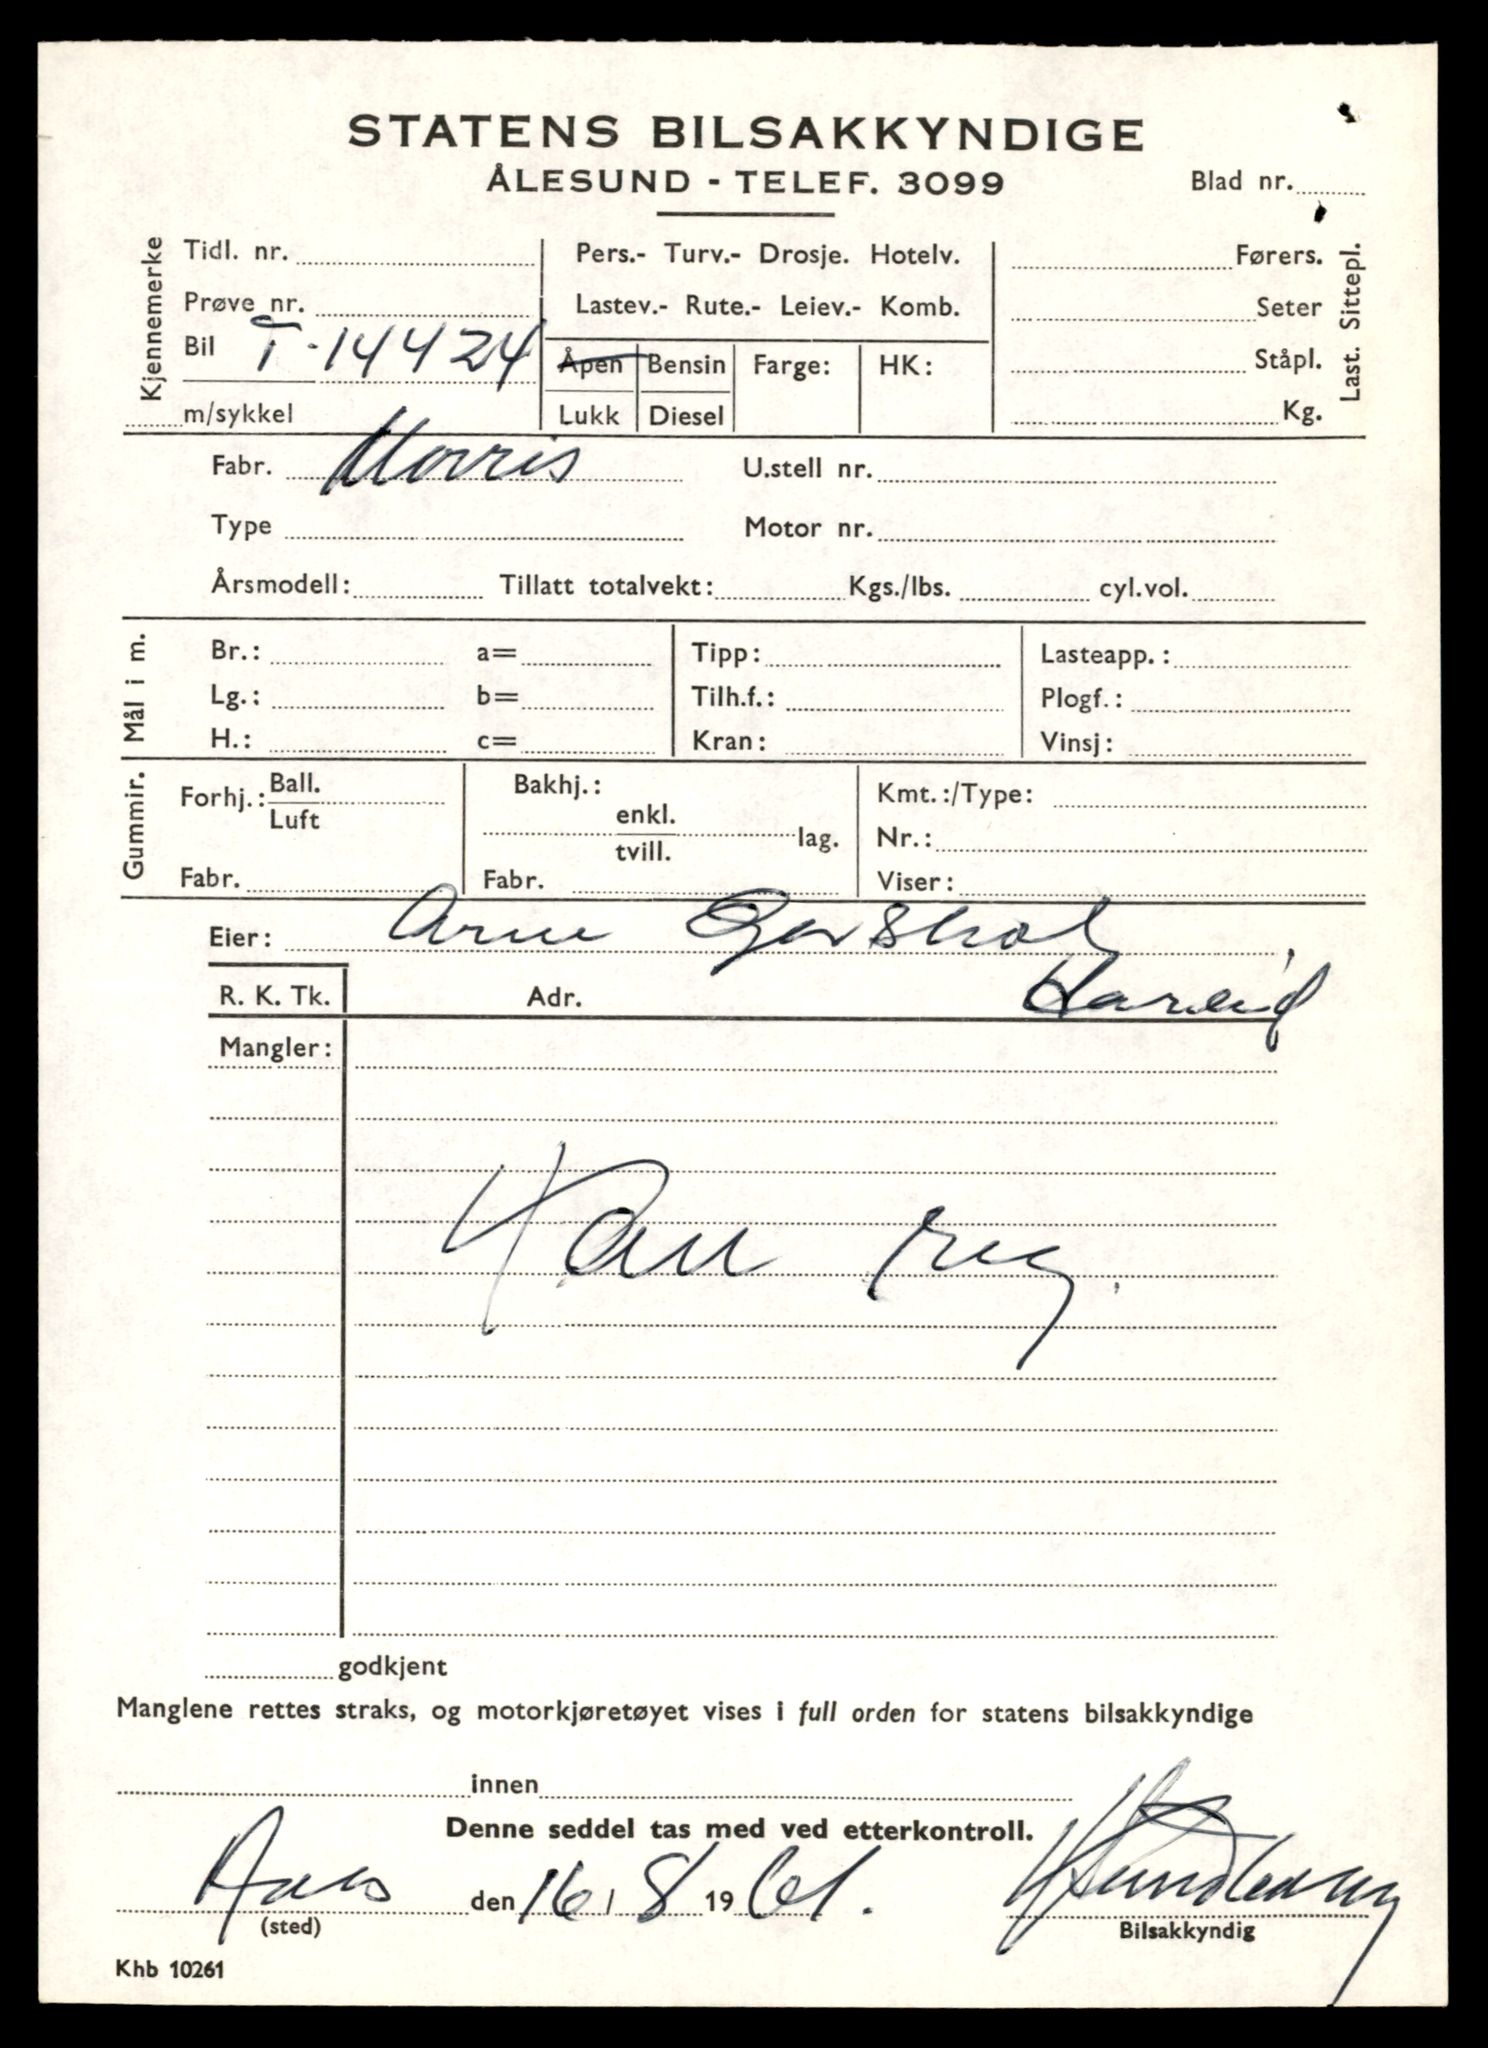 STATENS BILSAKKYNDIGE
ÅLESUND - TELEF. 3099
Blad nr.
Kjennemerke
Tidl. nr.
Prøve nr.
Bil T-14424
m/sykkel
Pers.- Turv.- Drosje. Hotelv.
Lastev.- Rute.- Leiev.- Komb.
Åpen Bensin Farge: HK:
Lukk Diesel
Førers.
Seter
Ståpl.
Kg.
Last. Sittepl.
Fabr. Morris U.stell nr.
Type Motor nr.
Årsmodell: Tillatt totalvekt: Kgs./lbs. cyl.vol.
Mål i m.
Br.: a= Tipp: Lasteapp.:
Lg.: b= Tilh.f.: Plogf.:
H.: c= Kran: Vinsj:
Gummir.
Forhj.: Ball. Luft
Fabr.
Bakhj.:
enkl.
tvill. lag.
Fabr.
Kmt.:/Type:
Nr.:
Viser:
Eier: Arne
R. K. Tk. Adr. Hareid
Mangler:
Kan reg.
godkjent
Manglene rettes straks, og motorkjøretøyet vises i full orden for statens bilsakkyndige
innen
Denne seddel tas med ved etterkontroll.
den 16/8 1961.
(sted)
Bilsakkyndig
Khb 10261